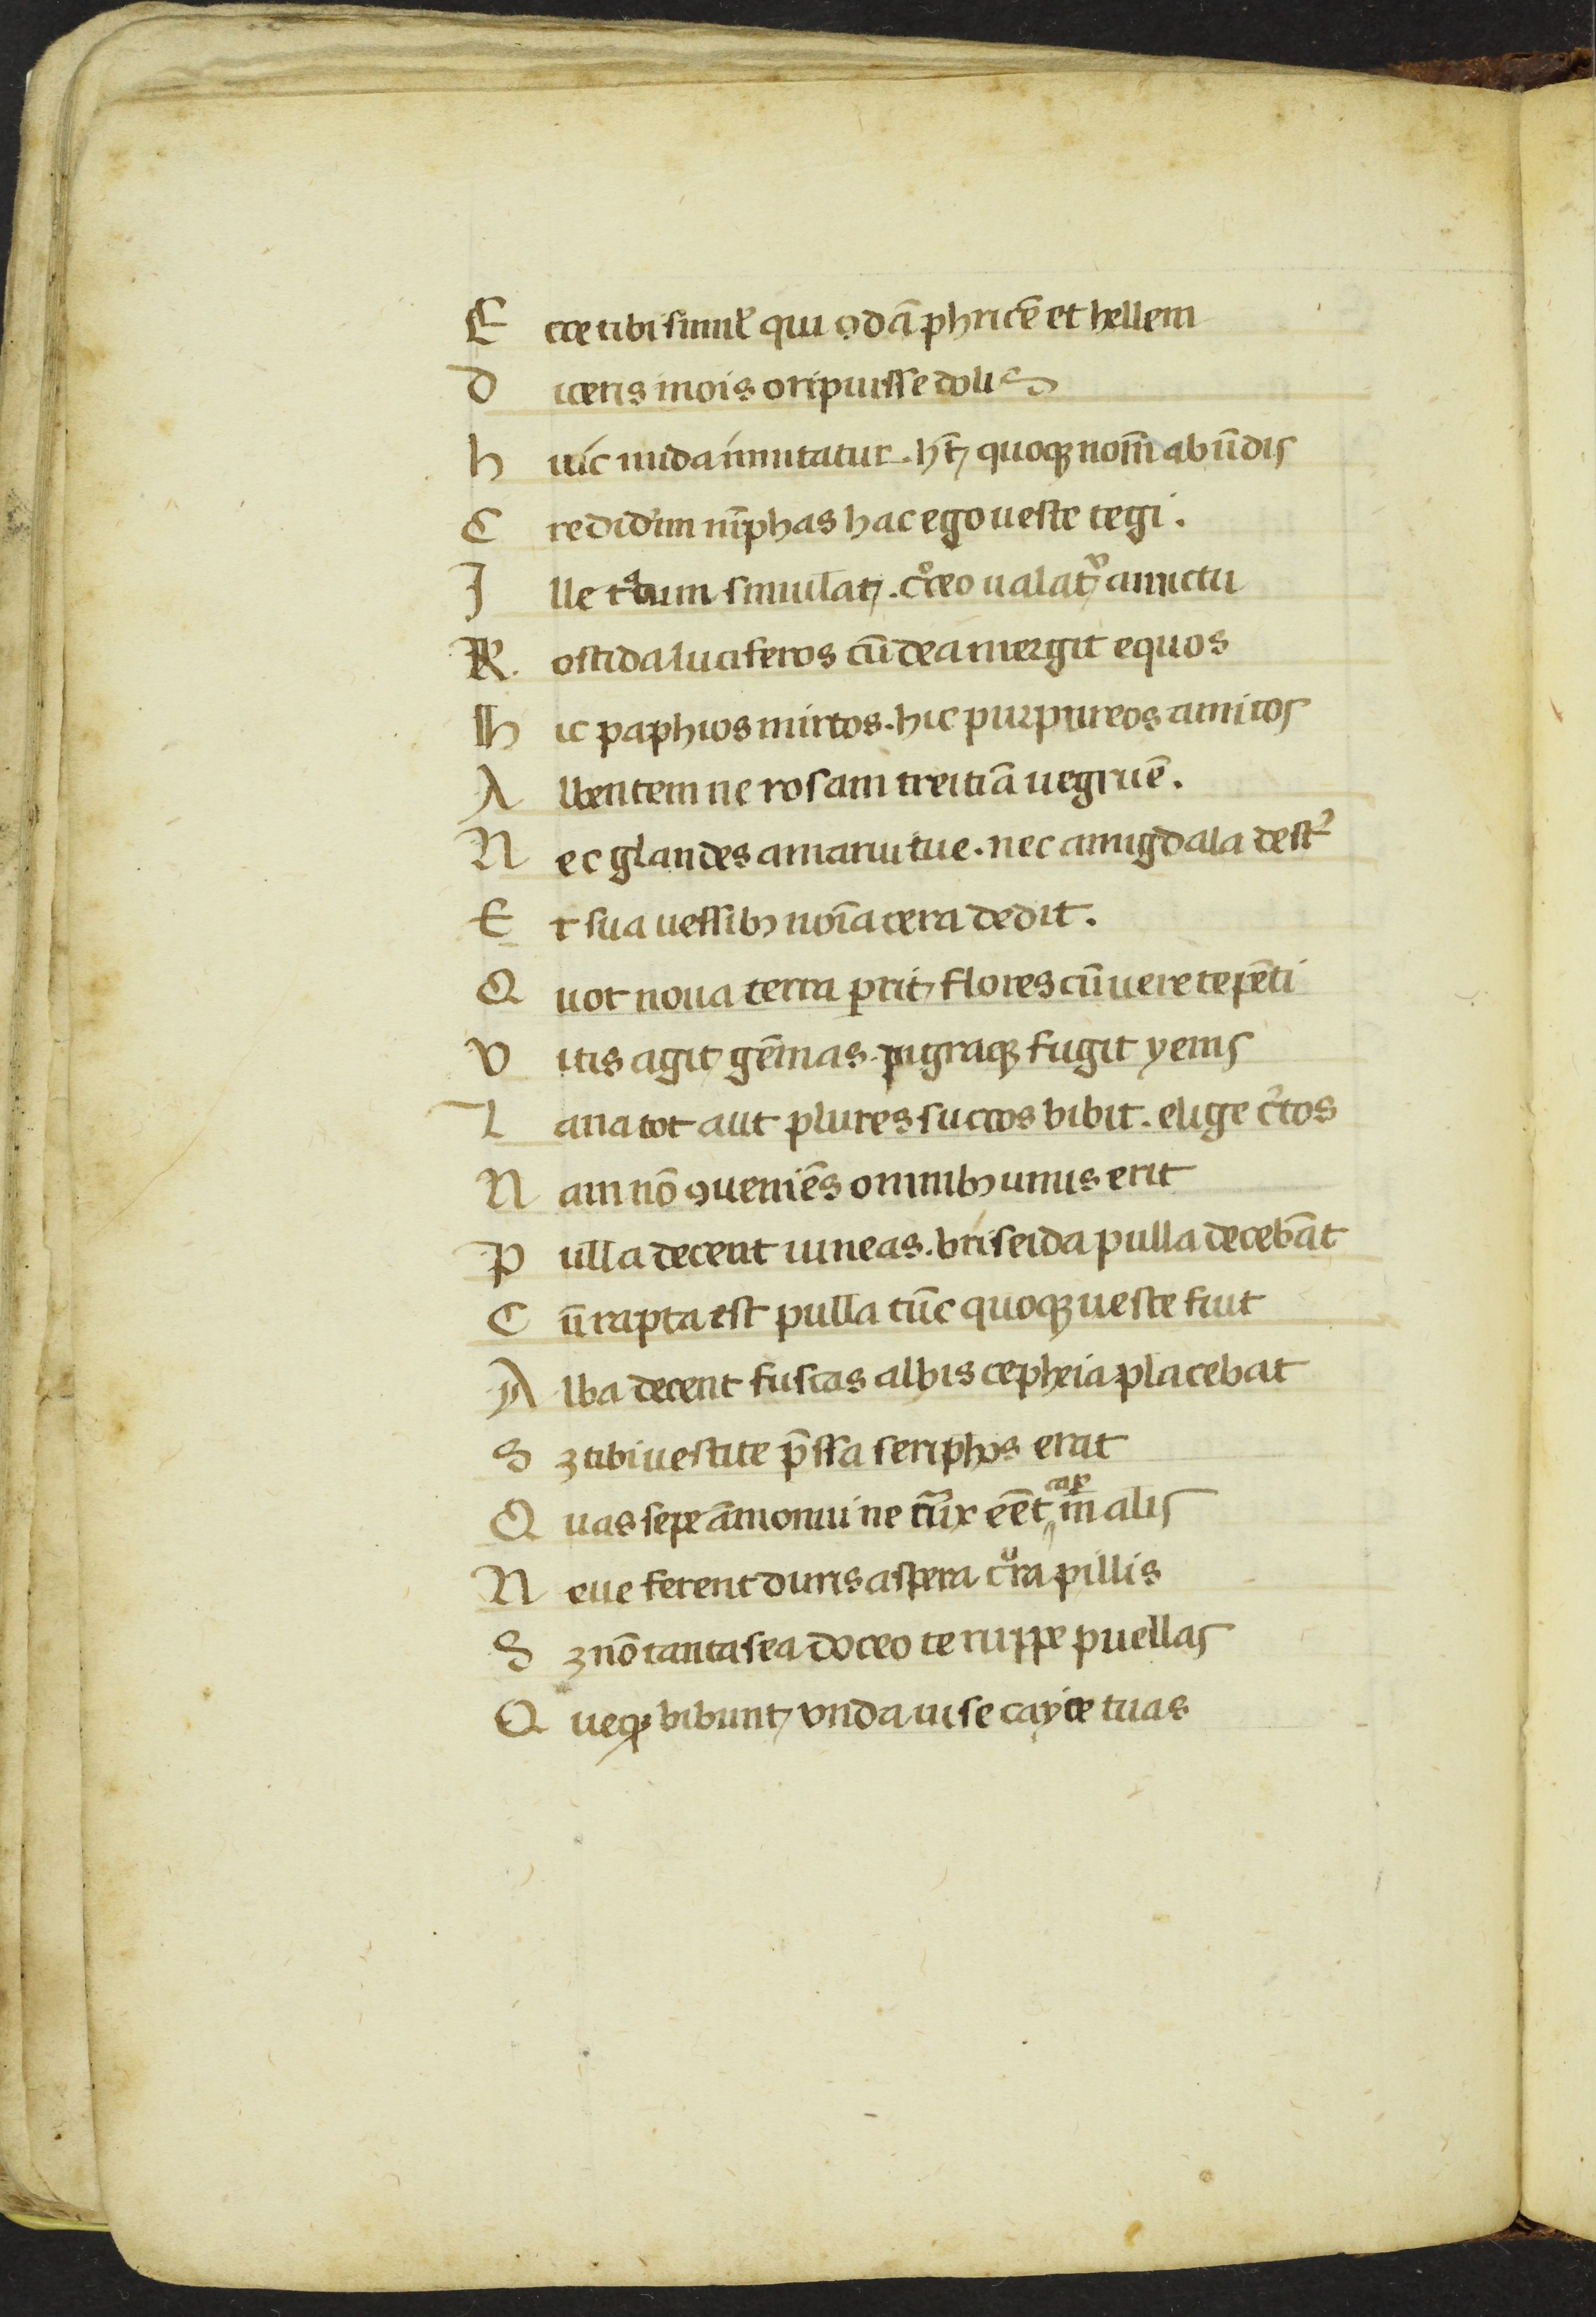 E cce tibi simil' qui ꝯdā phricē et hellem
D iceris inois oripuisse dolis
h uic uuda imutatur. hꝫ quoqꝫ nom̄ ab ūdis
C redidim nīphas hac ego ueste tegi.
I lle crocum simulatꝫ. croceo ualatr amictu
R oscida luciferos cū dea mergit equos
H ic paphios mirtos. hic purpureos amitos
A lbentem ne rosam treitiā uegruē.
N ec glandes amarui tue. nec amigdala dest'
E t sua uessibꝫ noīa cera dedit.
Q uot noua terra parit, flores cū uere tepēti
V itis agit, gēmas. pigraqꝫ fugit yems
L ana tot aut plures succos bibit. elige c'tos
N am nō ꝯueniēs omnibꝫ unus erit
P ulla decent niueas. briseida pulla decebāt
C ū rapta est pulla tūc quoqꝫ ueste fuit
A lba decent fuscas albis cepheia placebat
S ꝫ tibi uestite p̄ssa seriphos erat
Q uas sepe āmonui ne trux eēt cap̄ in alis
N eue ferent duris aspera crura pillis
S ꝫ nō cantasea doceo te ruppe puellas
Q ueqꝫ bibunt, vnda iuise cayce tuas